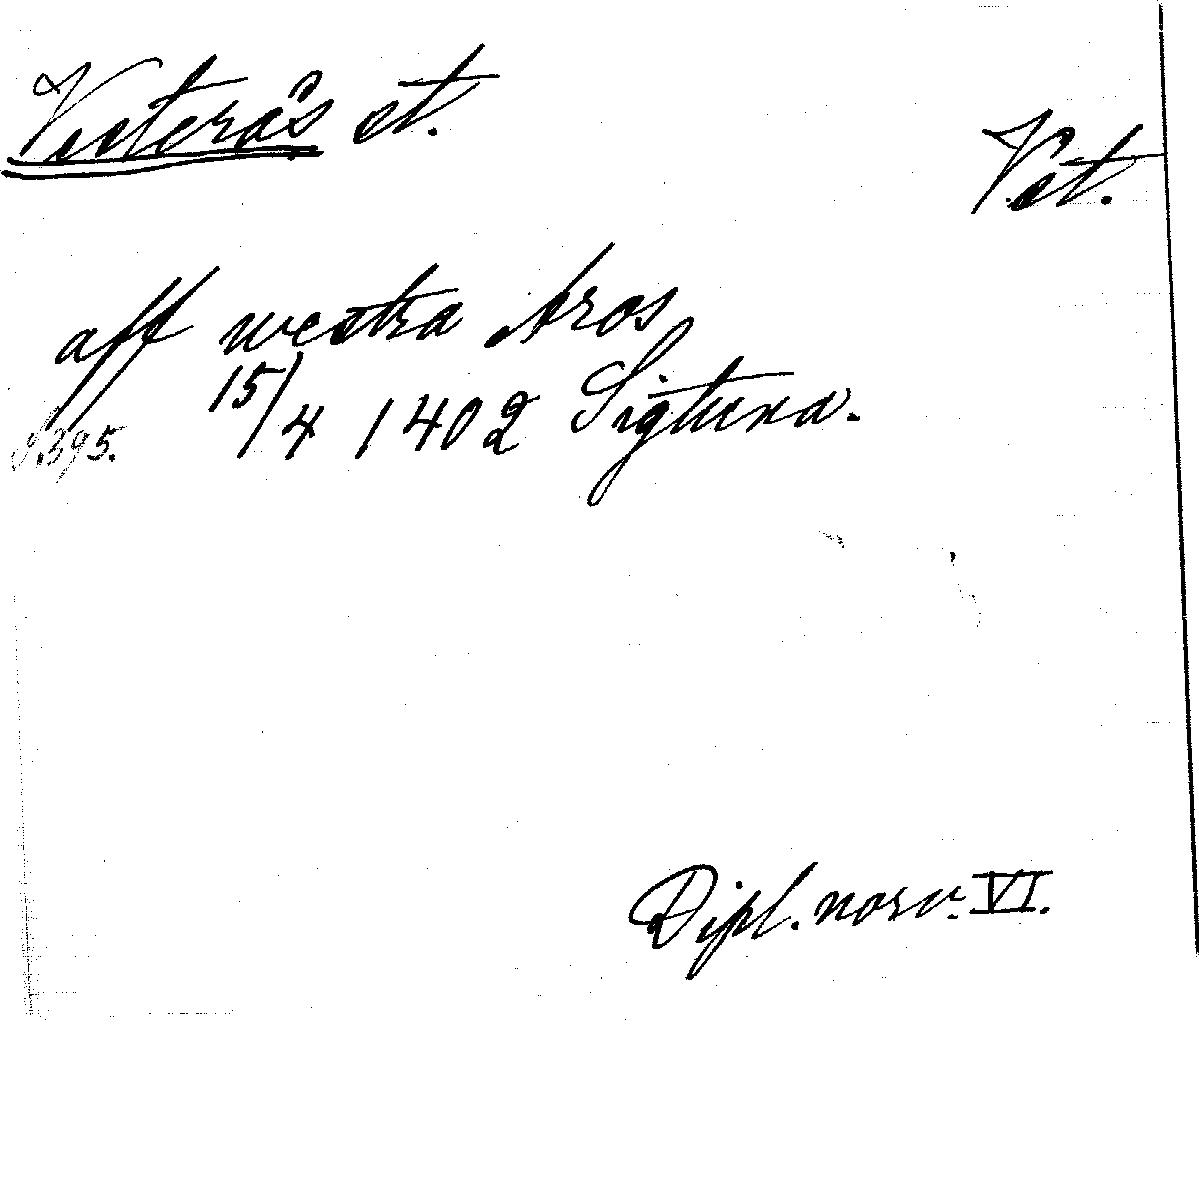 Vesterås st.
Vst.
aff westra Aros
15/4 1402 Sigtuna.
S. 395.
Dipl. norv. VI.